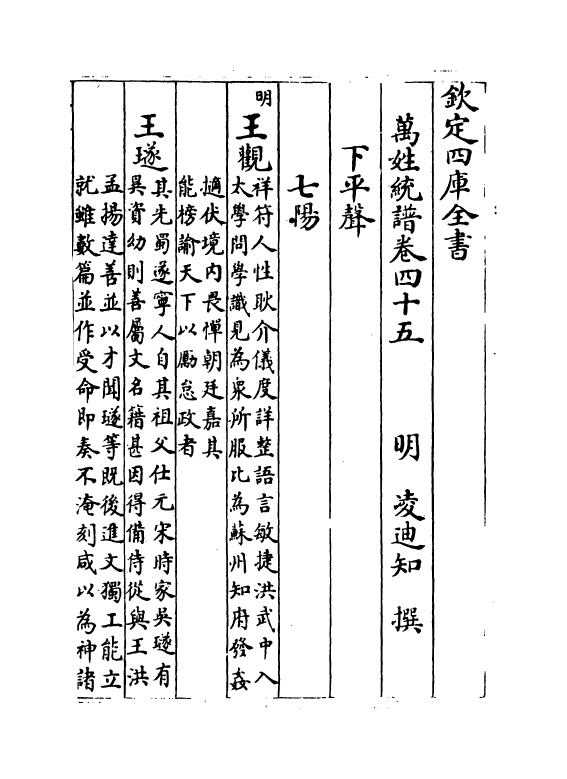 欽定四庫全書
萬姓統譜卷四十五　明　凌迪知　撰
下平聲
七陽
明
王觀
祥符人性耿介儀度詳整語言敏捷洪武中入
太學問學識見為衆所服比為蘇州知府發姦
擿伏境内畏憚朝廷嘉其
能榜諭天下以勵怠政者
王璲
其先蜀遂寧人自其祖父仕元宋時家吳璲有
異資幼則善屬文名籍甚因得備侍從與王洪
孟揚達善並以才聞璲等既後進文獨工能立
就雖數篇並作受命即奏不淹刻咸以為神諸